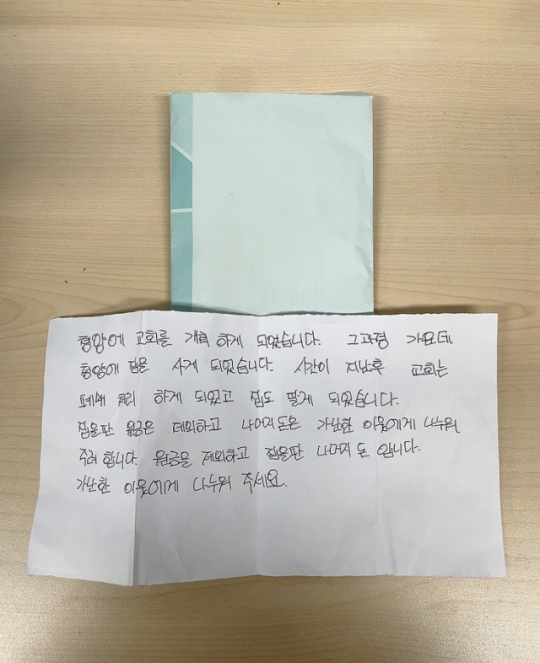 함양에 교회를 개척 하게 되었습니다. 그과정 가운데
함양에 집을 사게 되었습니다. 시간이 지난후 교회는
폐쇄 처리 하게 되었고 집도 팔게 되었습니다.
집을판 원금은 제외하고 나머지돈은 가난한 이웃에게 나누워
주려 합니다. 원금을 제외하고 집을판 나머지 돈 입니다.
가난한 이웃에게 나누워 주세요.